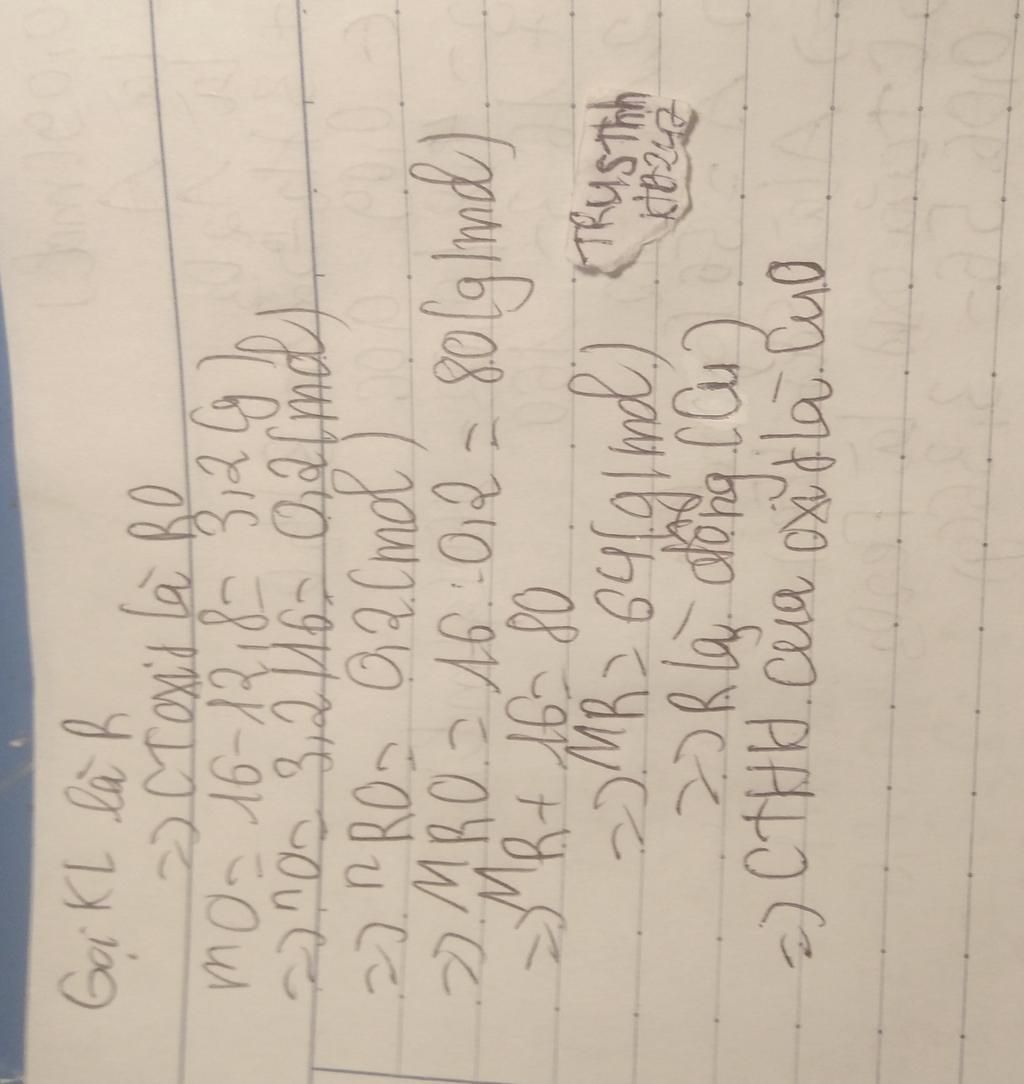 Gọi KL là R
=) CT oxit là RO
mO = 16-12,8= 3,2(g)
=) nO= 3,2/16= 0,2(mol)
=) nRO= 0,2(mol)
=) MRO = 16:0,2 = 80(g/mol)
=) MR+ 16= 80
=) MR= 64(g/mol)
=) R là đồng (Cu)
=) CTHH của oxit là CuO
TRUSThh